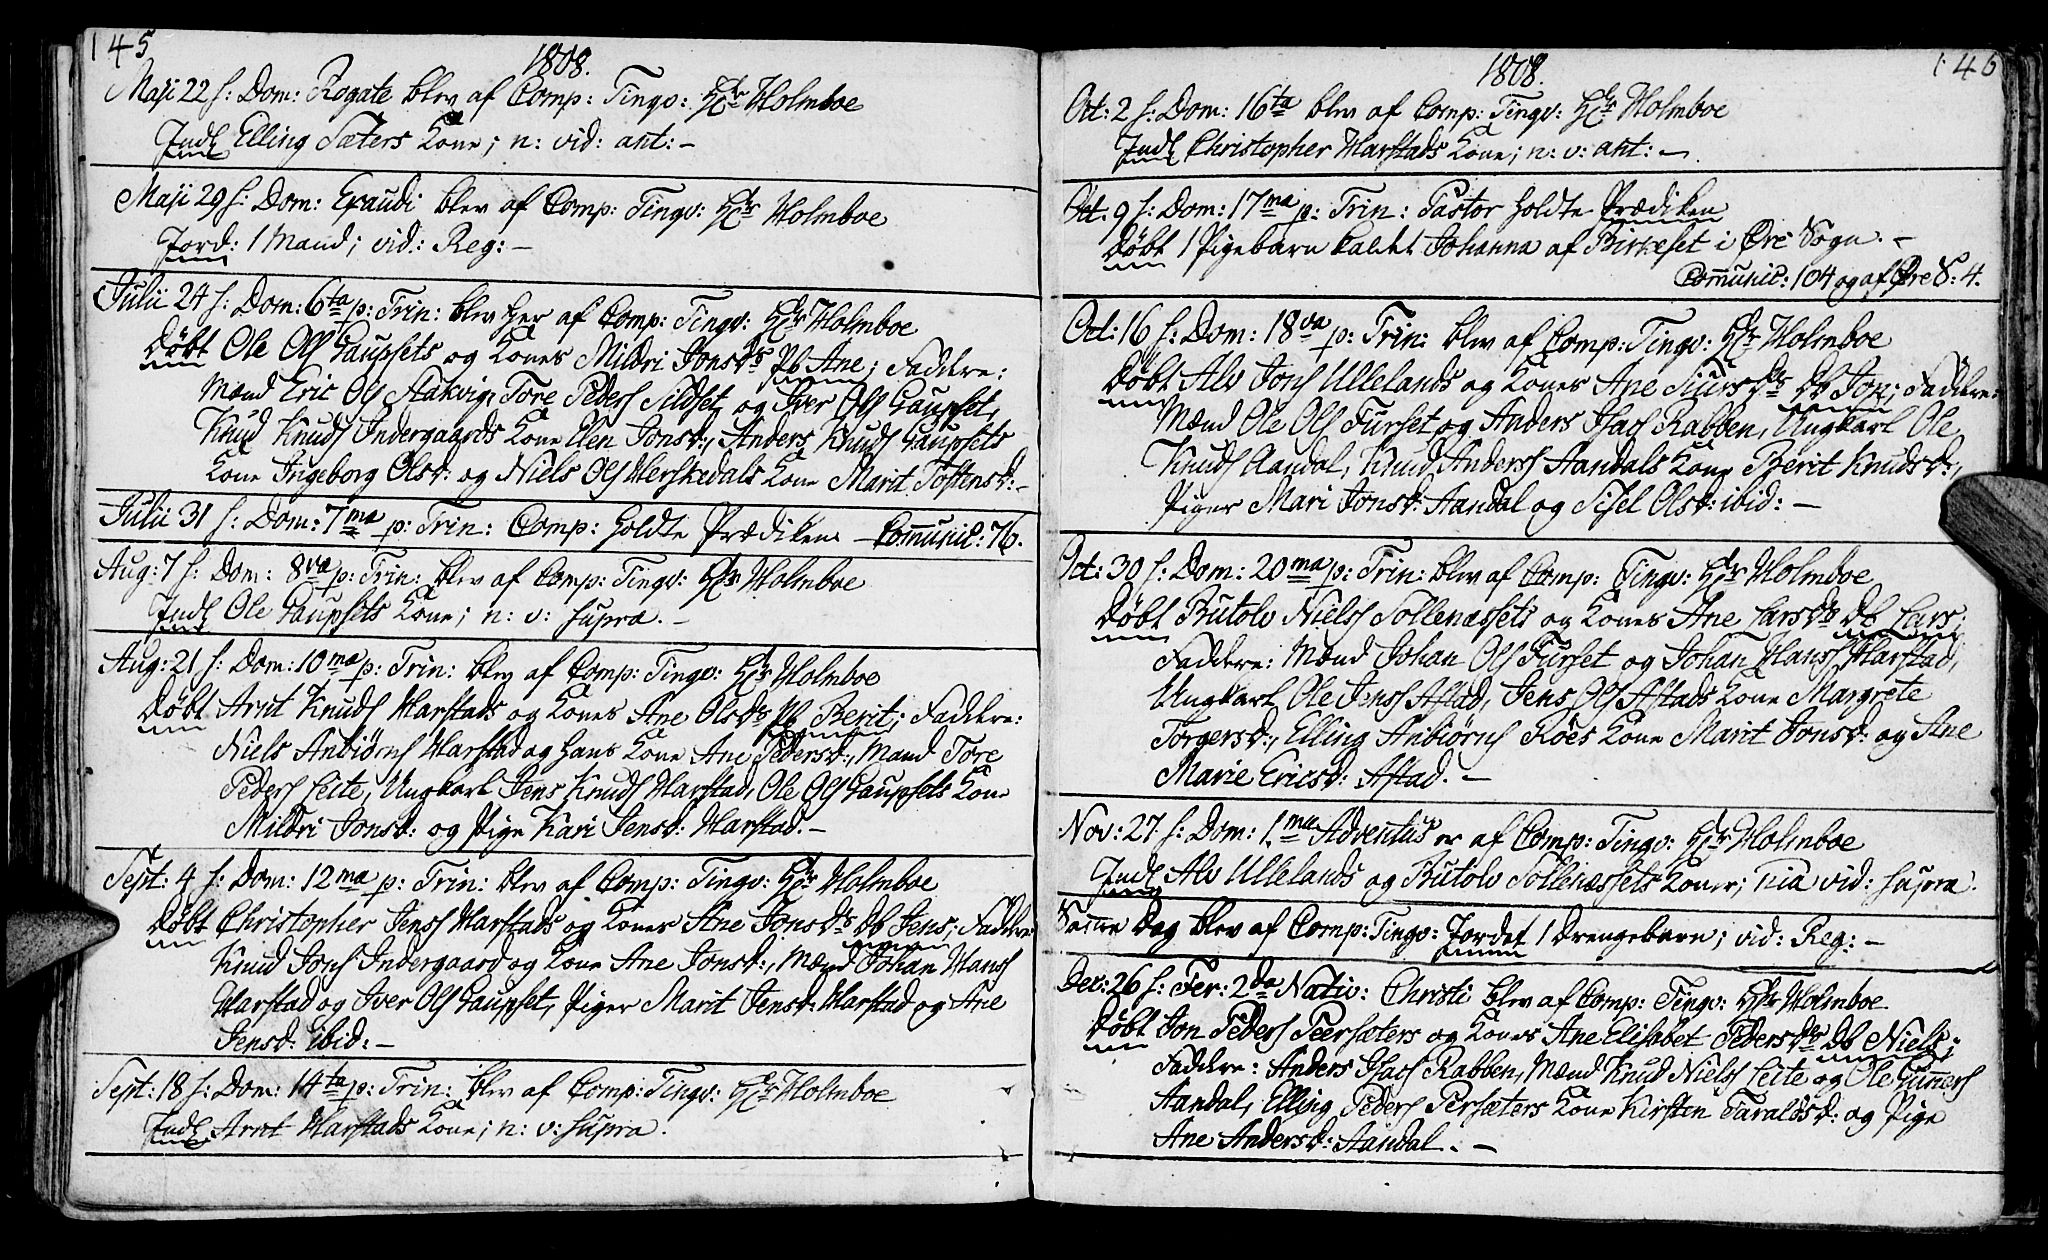 145
1808.
Maji 22 f: Dom: Rogate blev af Comp: Tingv: Hr Holmboe
Indl Elling Sæters Kone; n: vid: ant: –
Maji 29 f: Dom: Exaudi blev af Comp: Tingv: Hr Holmboe
Jord: 1 Mand; vid: Reg: –
Julii 24 f: Dom: 6ta p: Trin: blev her af Comp: Tingv: Hr Holmboe
Døbt Ole Ols Gaupsets og Kones Mildri Jonsdr Pb Ane; Faddere:
Mænd Eric Ols Stakvig, Tore Peders Sildset, og Iver Ols Gaupset,
Knud Knuds Indergaards Kone Elen Jonsd:, Anders Knuds Gaupsets
Kone Ingeborg Olsd: og Niels Ols Herskedals Kone Marit Tostensd: –
Julii 31 f: Dom: 7ma p: Trin: Comp: holdte Prædiken – Communic: 76.
Aug: 7 f: Dom: 8va p: Trin: blev af Comp: Tingv: Hr Holmboe
Indl Ole Gaupsets Kone; n: v: supra. –
Aug: 21 f: Dom: 10ma p: Trin: blev af Comp: Tingv: Hr Holmboe
Døbt Arnt Knuds Harstads og Kones Ane Olsdr Pb Berit; Faddere:
Niels Anbiørns Harstad og hans Kone Ane Pedersd:, Mænd Tore
Peders Leite, Ungkarl Jens Knuds Harstad, Ole Ols Gaupsets Kone
Mildri Jonsd: og Pige Kari Jensd: Harstad. –
Sept: 4 f: Dom: 12ma p: Trin: blev af Comp: Tingv: Hr Holmboe
Døbt Christopher Jens Harstads og Kones Ane Jonsdr Db Jens; Faddere:
Knud Jons Indergaard og Kone Ane Jonsd:, Mænd Johan Hans
Harstad og Iver Ols Gaupset, Piger Marit Jensd: Harstad og Ane
Jensd: ibid: –
Sept: 18 f: Dom: 14ta p: Trin: blev af Comp: Tingv: Hr Holmboe
Indl Arnt Harstads Kone; n: v: supra.
146
1808.
Oct: 2 f: Dom: 16ta blev af Comp: Tingv: Hr Holmboe
Indl Christopher Harstads Kone; n: v: ant: –
Oct: 9 f: Dom: 17ma p: Trin: Pastor holdte Prædiken
Døbt 1 Pigebarn kaldet Johanna af Birkeset i Øre Sogn. –
Communic: 104 og af Øre S: 4.
Oct: 16 f: Dom: 18va p: Trin: blev af Comp: Tingv: Hr Holmboe
Døbt Alv Jons Ullelands og Kones Ane Siursdr Db Jon; Faddere:
Mænd Ole Ols Furset og Anders Isacs Rabben, Ungkarl Ole
Knuds Aandal, Knud Anderss Aandals Kone Berit Knudsd:,
Piger Mari Jonsd: Aandal og Sisel Olsd: ibid: –
Oct: 30 f: Dom: 20ma p: Trin: blev af Comp: Tingv: Hr Holmboe
Døbt Butolv Nielss Sollenæssets og Kones Ane Larsdr Db Lars;
Faddere: Mænd Johan Ols Furset og Johan Hans Harstad,
Ungkarl Ole Jenss Astad, Jens Ols Astads Kone Margrete
Torgersd:, Elling Anbiørns Röes Kone Marit Jonsd: og Ane
Marie Ericsd: Astad. –
Nov: 27 f: Dom: 1ma Adventus er af Comp: Tingv: Hr Holmboe
Indl Alv Ullelands og Butolv Sollenæssets Koner; nia vid: supra.
Samme Dag blev af Comp: Tingv: Jordet 1 Drengebarn; vid: Reg: –
Dec: 26 f: Fer: 2da Nativ: Christi blev af Comp: Tingv: Hr Holmboe
Døbt Jon Peders Peersæters og Kones Ane Elisabet Pedersdr Db Niels;
Faddere: Anders Isacs Rabben, Mænd Knud Nielss Leite og Ole Gunners
Aandal, Elling Peders Persæters Kone Kirsten Taraldsd: og Pige
Ane Andersd: Aandal. –